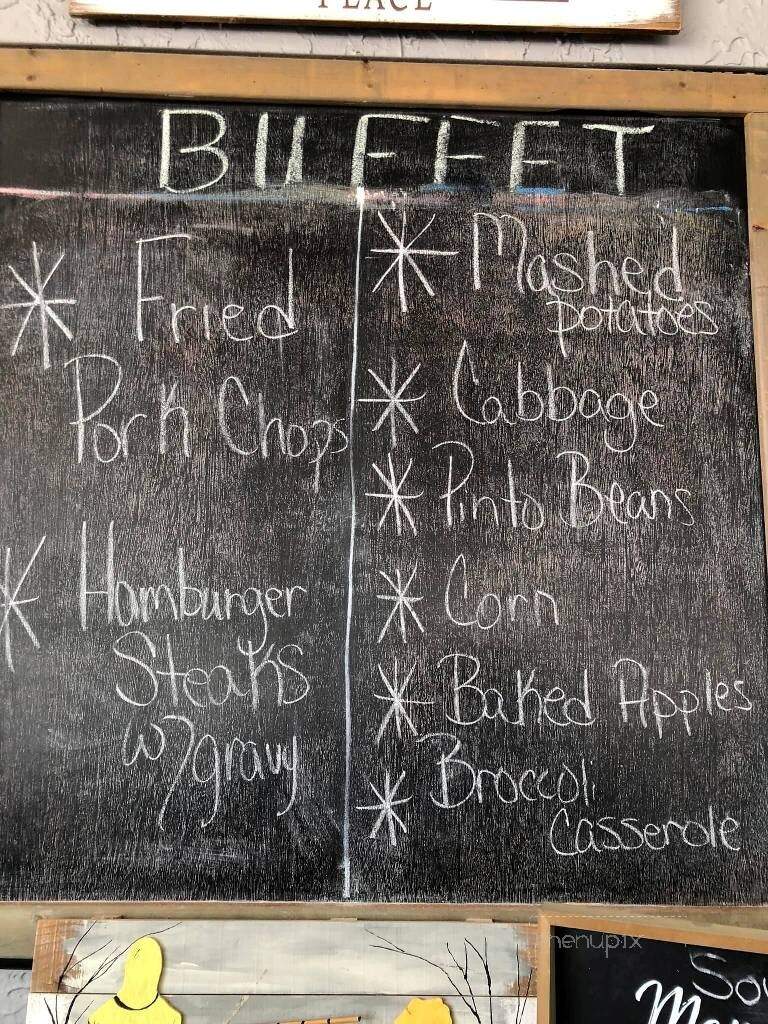 PLACE
BUFFET
* Fried
Pork Chops
* Hamburger
Steaks
w/gravy
* Mashed
potatoes
* Cabbage
* Pinto Beans
* Corn
* Baked Apples
* Broccoli
Casserole
menupix